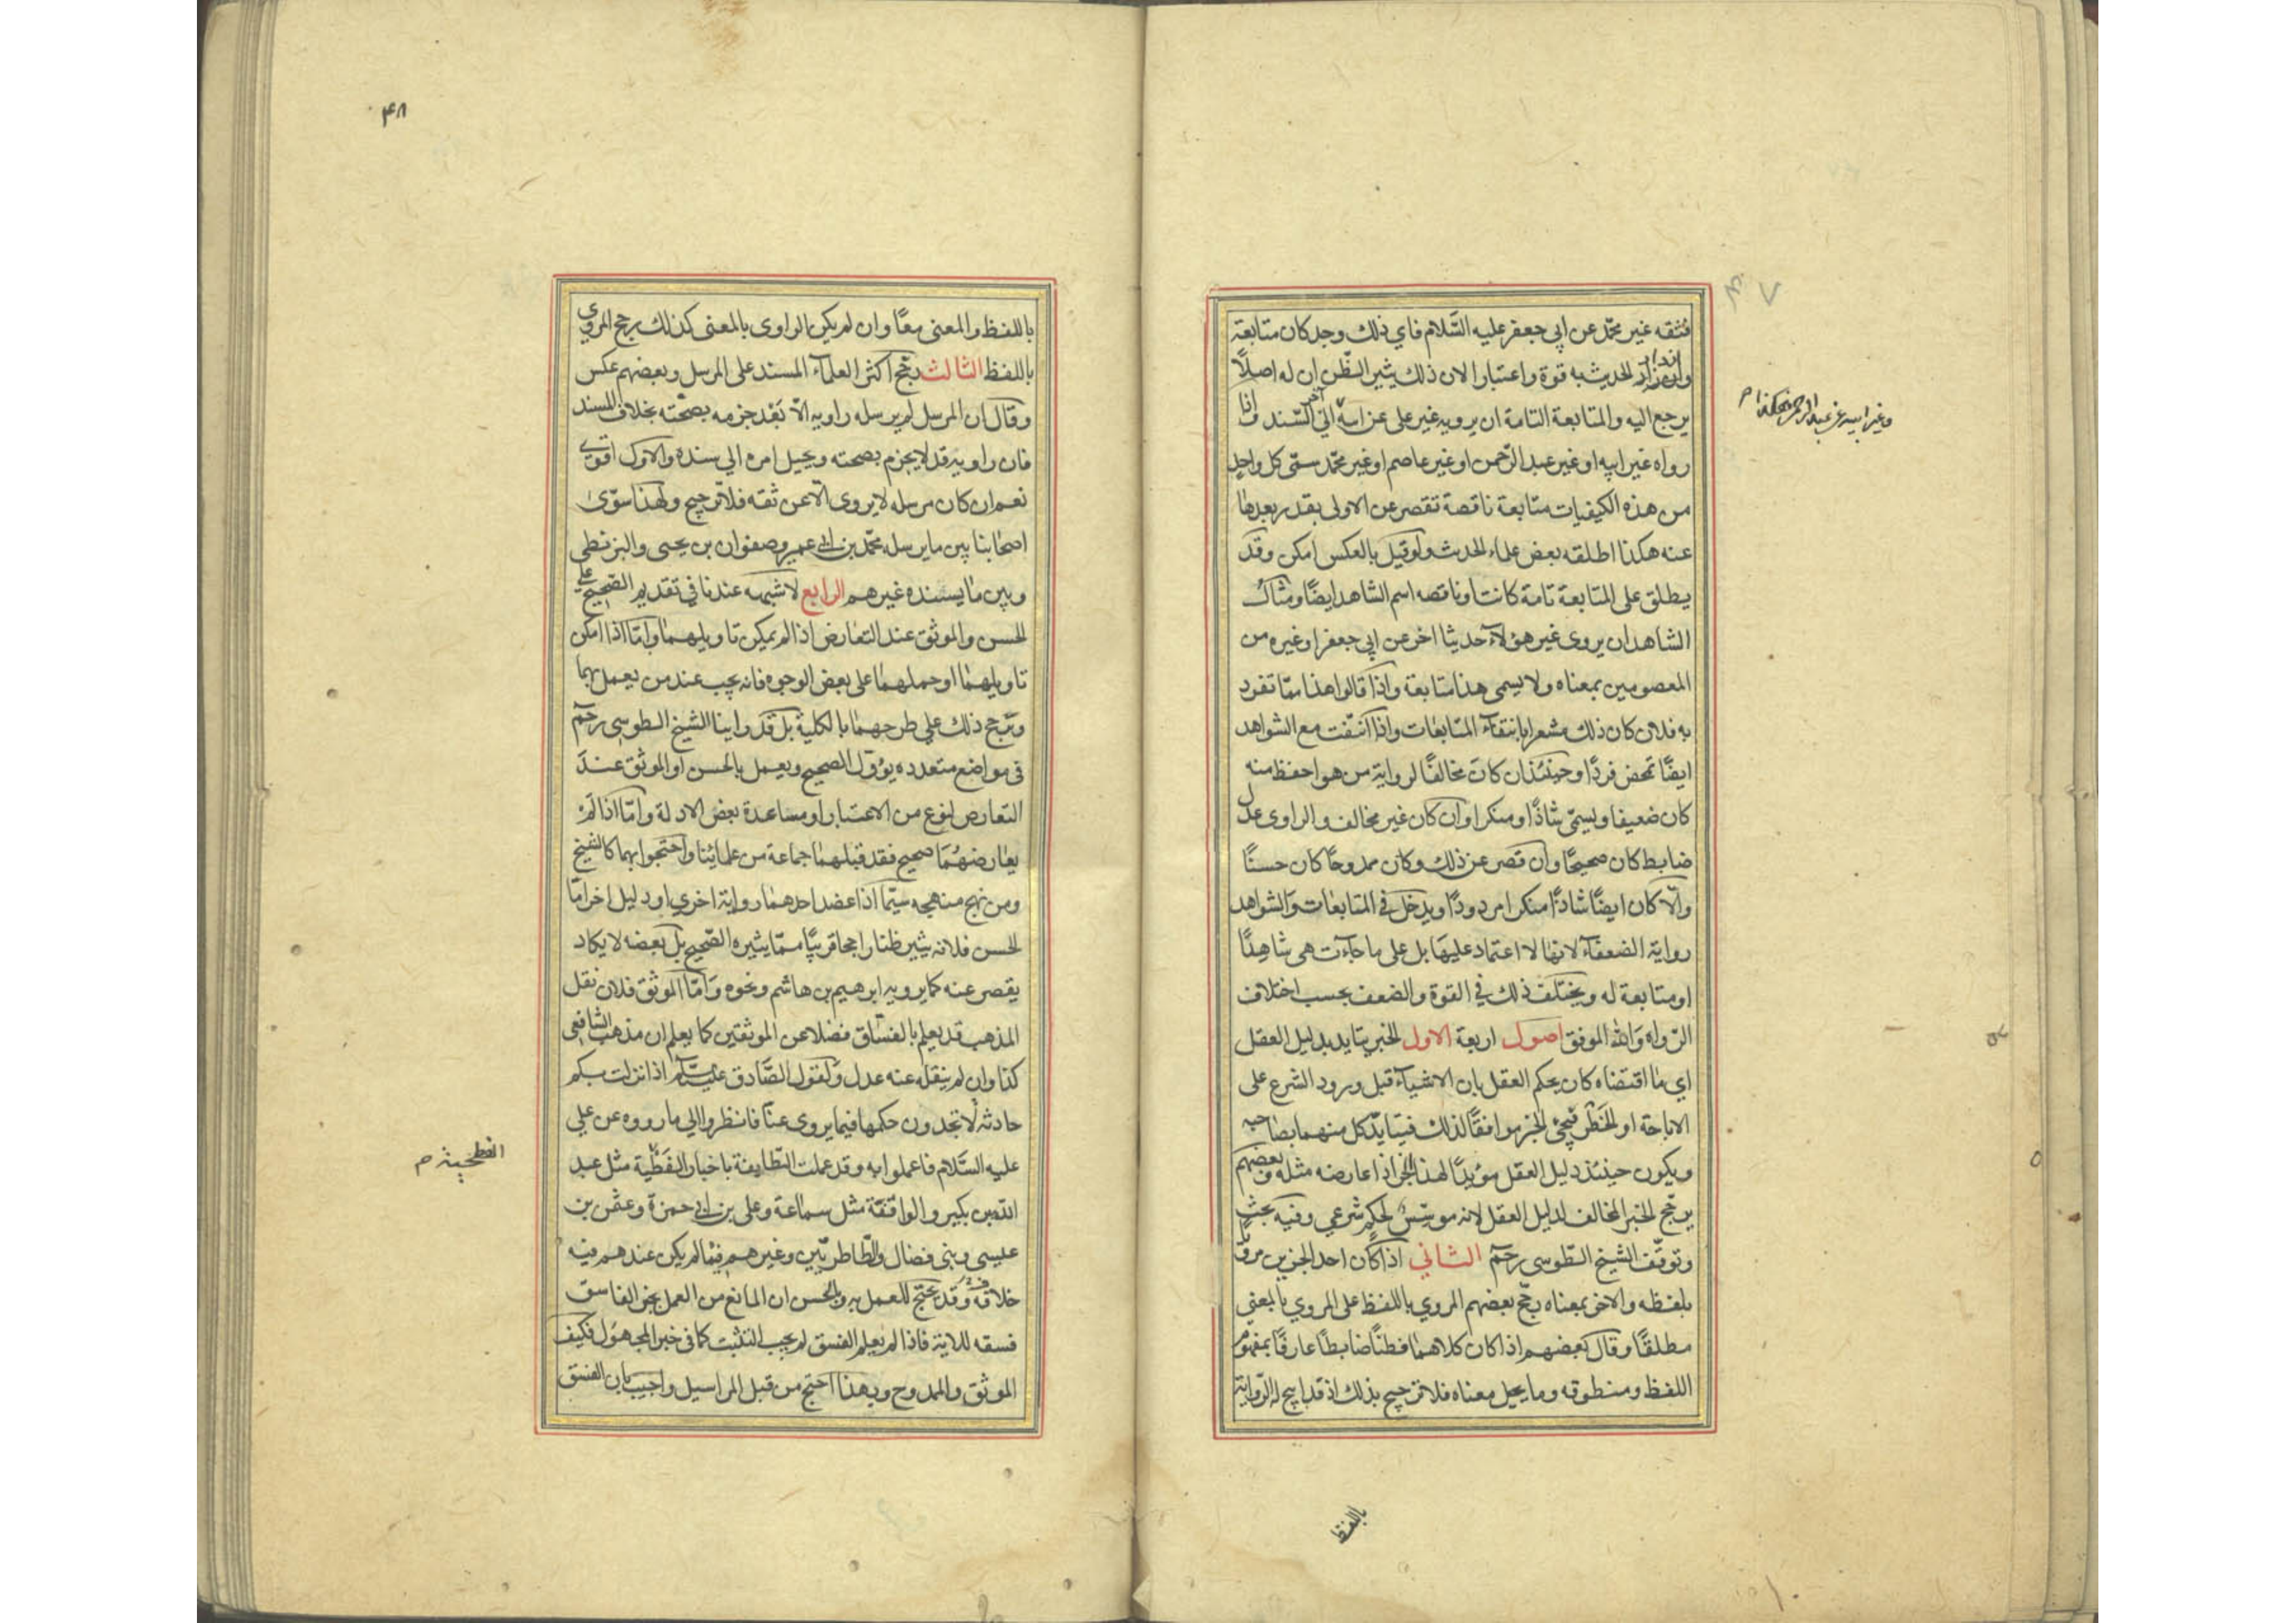 فثقه غير محمّد عن ابي جعفر عليه السّلام فاي ذلك وجد كان متابعة
وازداد الحديث به قوة واعتبارا لان ذلك يثير الظّن ان له اصلاً
يرجع اليه والمتابعة التامة ان يرويه غير علي عن ابيه الى آخر السّند واذا
رواه غير ابيه او غير عبد الرّحمن او غير عاصم او غير محمّد سمّى كل واحد
من هذه الكيفيات متابعة ناقصة تقصر عن الاولى بقدر بعدها
عنه هكذا اطلقه بعض علماء الحديث ولو قيل بالعكس امكن وقد
يطلق على المتابعة تامة كانت او ناقصه اسم الشاهد ايضًا ومثال
الشاهد ان يروى غير هؤلاء حديثا اخر عن ابي جعفر او غيره من
المعصومين بمعناه ولا يسمى هذا متابعة واذا قالوا هذا ممّا تفرد
به فلان كان ذلك مشعرا بانتفاء المتابعات واذا انتفت مع الشواهد
ايضًا تمحض فردًا وحينئذ ان كان مخالفًا لرواية من هو احفظ منه
كان ضعيفا ويسمّى شاذًا ومنكرا وان كان غير مخالف والراوى عدل
ضابط كان صحيحًا وان قصر عن ذلك وكان ممدوحًا كان حسنًا
والّا كان ايضًا شاذًا منكرا مردودًا ويدخل في المتابعات والشواهد
رواية الضعفاء لانها لا اعتماد عليها بل على ما جاءت هى شاهدًا
او متابعة له ويختلف ذلك في القوة والضعف بحسب اختلاف
الرّواه والله الموفق اصول اربعة الاول الخبر يتايد بدليل العقل
اي ما اقتضاه كان يحكم العقل بان الاشياء قبل ورود الشرع على
الاباحة او الحَظْر فيجئ الخبر موافقًا لذلك فيتايد كل منهما بصاحبه
ويكون حينئذ دليل العقل مؤيدًا لهذا الخبر اذا عارضه مثله وبعضهم
يرجّح الخبر المخالف لدليل العقل لانه موسّس لحكم شرعي وفيه بحث
وتوقف الشيخ الطوسى رحمه الثاني اذا كان احد الخبرين مرويًا
بلفظه والاخر بمعناه رجّح بعضهم المروي باللفظ على المروي بالمعنى
مطلقًا وقال بعضهم اذا كان كلاهما فطنًا ضابطًا عارفًا بمفهوم
اللفظ ومنطوقه وما يحيل معناه فلا ترجيح بذلك اذ قد ابيح له الرّواية
باللفظ
وغير ابيه عن عبد الرحمن هكذا م
۴۸
باللفظ والمعنى معًا وان لم يكن الراوى بالمعنى كذلك رجح المروي
باللفظ الثالث رجّح اكثر العلماء المسند على المرسل وبعضهم عكس
وقال ان المرسل لم يرسله راويه الّا بَعْد جزمه بصحّته بخلاف المسند
فان راويه قد لا يجزم بصحته ويحيل امره الى سنده والاول اقوى
نعم ان كان مرسله لا يروى الّا عن ثقه فلا ترجيح ولهذا سوّى
اصحابنا بين ما يرسله محمّد بن ابي عمير وصفوان بن يحيى والبزنطى
وبين ما يسنده غيرهم الرابع لا شبهه عندنا في تقديم الصّحيح على
الحسن والموثق عند التعارض اذا لم يمكن تاويلهما وامّا اذا امكن
تاويلهما او حملهما على بعض الوجوه فانه يجب عند من يعمل بهما
وترجّح ذلك على طرحهما بالكلية بل قد راينا الشيخ الطوسي رحمه
في مواضع متعدده يؤول الصحيح ويعمل بالحسن او الموثق عند
التعارض لنوع من الاعتبار او مساعدة بعض الادلة وامّا اذا لم
يعارضهُما صحيح فقد قبلهما جماعة من علمائنا واحتجوا بهما كالشيخ
ومن نهج منهجه سيّما اذا عضد احدهما رواية اخري او دليل اخر امّا
الحسن فلانه يثير ظنا راجحا قريبًا ممّا يثيره الصّحيح بل بعضه لا يكاد
يقصر عنه كما يرويه ابرهيم بن هاشم ونحوه وامّا الموثق فلان نقل
المذهب قد يعلم بالفسّاق فضلا عن الموثقين كما يعلم ان مذهب الشافعي
كذا وان لم ينقله عنه عدل ولقول الصّادق عليه السلام اذا نزلت بكم
حادثه لا تجدون حكمها فيما يروى عنّا فانظروا الي ما رووه عن علي
عليه السّلام فاعملوا به وقد عملت الطّايفة باخبار الفطحية مثل عبد
الله بن بكير والواقفة مثل سماعة وعلى بن ابي حمزة وعثمن بن
عيسى وبنى فضال والطّاطريّين وغيرهم فيما لم يكن عندهم فيه
خلافه وقد يحتج للعمل به وبالحسن ان المانع من العمل بخبر الفاسق
فسقه للاية فاذا لم يعلم الفسق لم يجب التثبت كما في خبر المجهول فكيف
الموثق والممدوح وبهذا احتج من قبل المراسيل واجيب بان الفسق
الفطحيه م